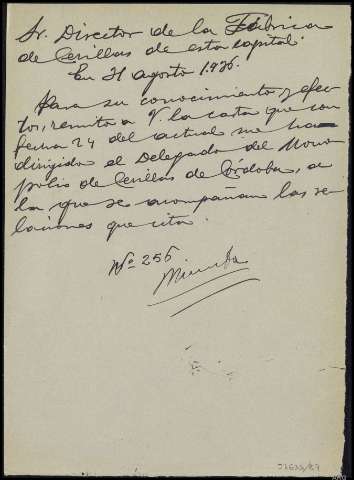 Sr. Director de la Fábrica
de Cerillas de esta capital.
En 31 agosto 1936.
Para su conocimiento y efec-
tos, remito a V. la carta que con
fecha 24 del actual me ha
dirigido el Delegado del Mono-
polio de Cerillas de Córdoba, a
la que se acompañan las re-
laciones que cita.
Nº 256
Minuta